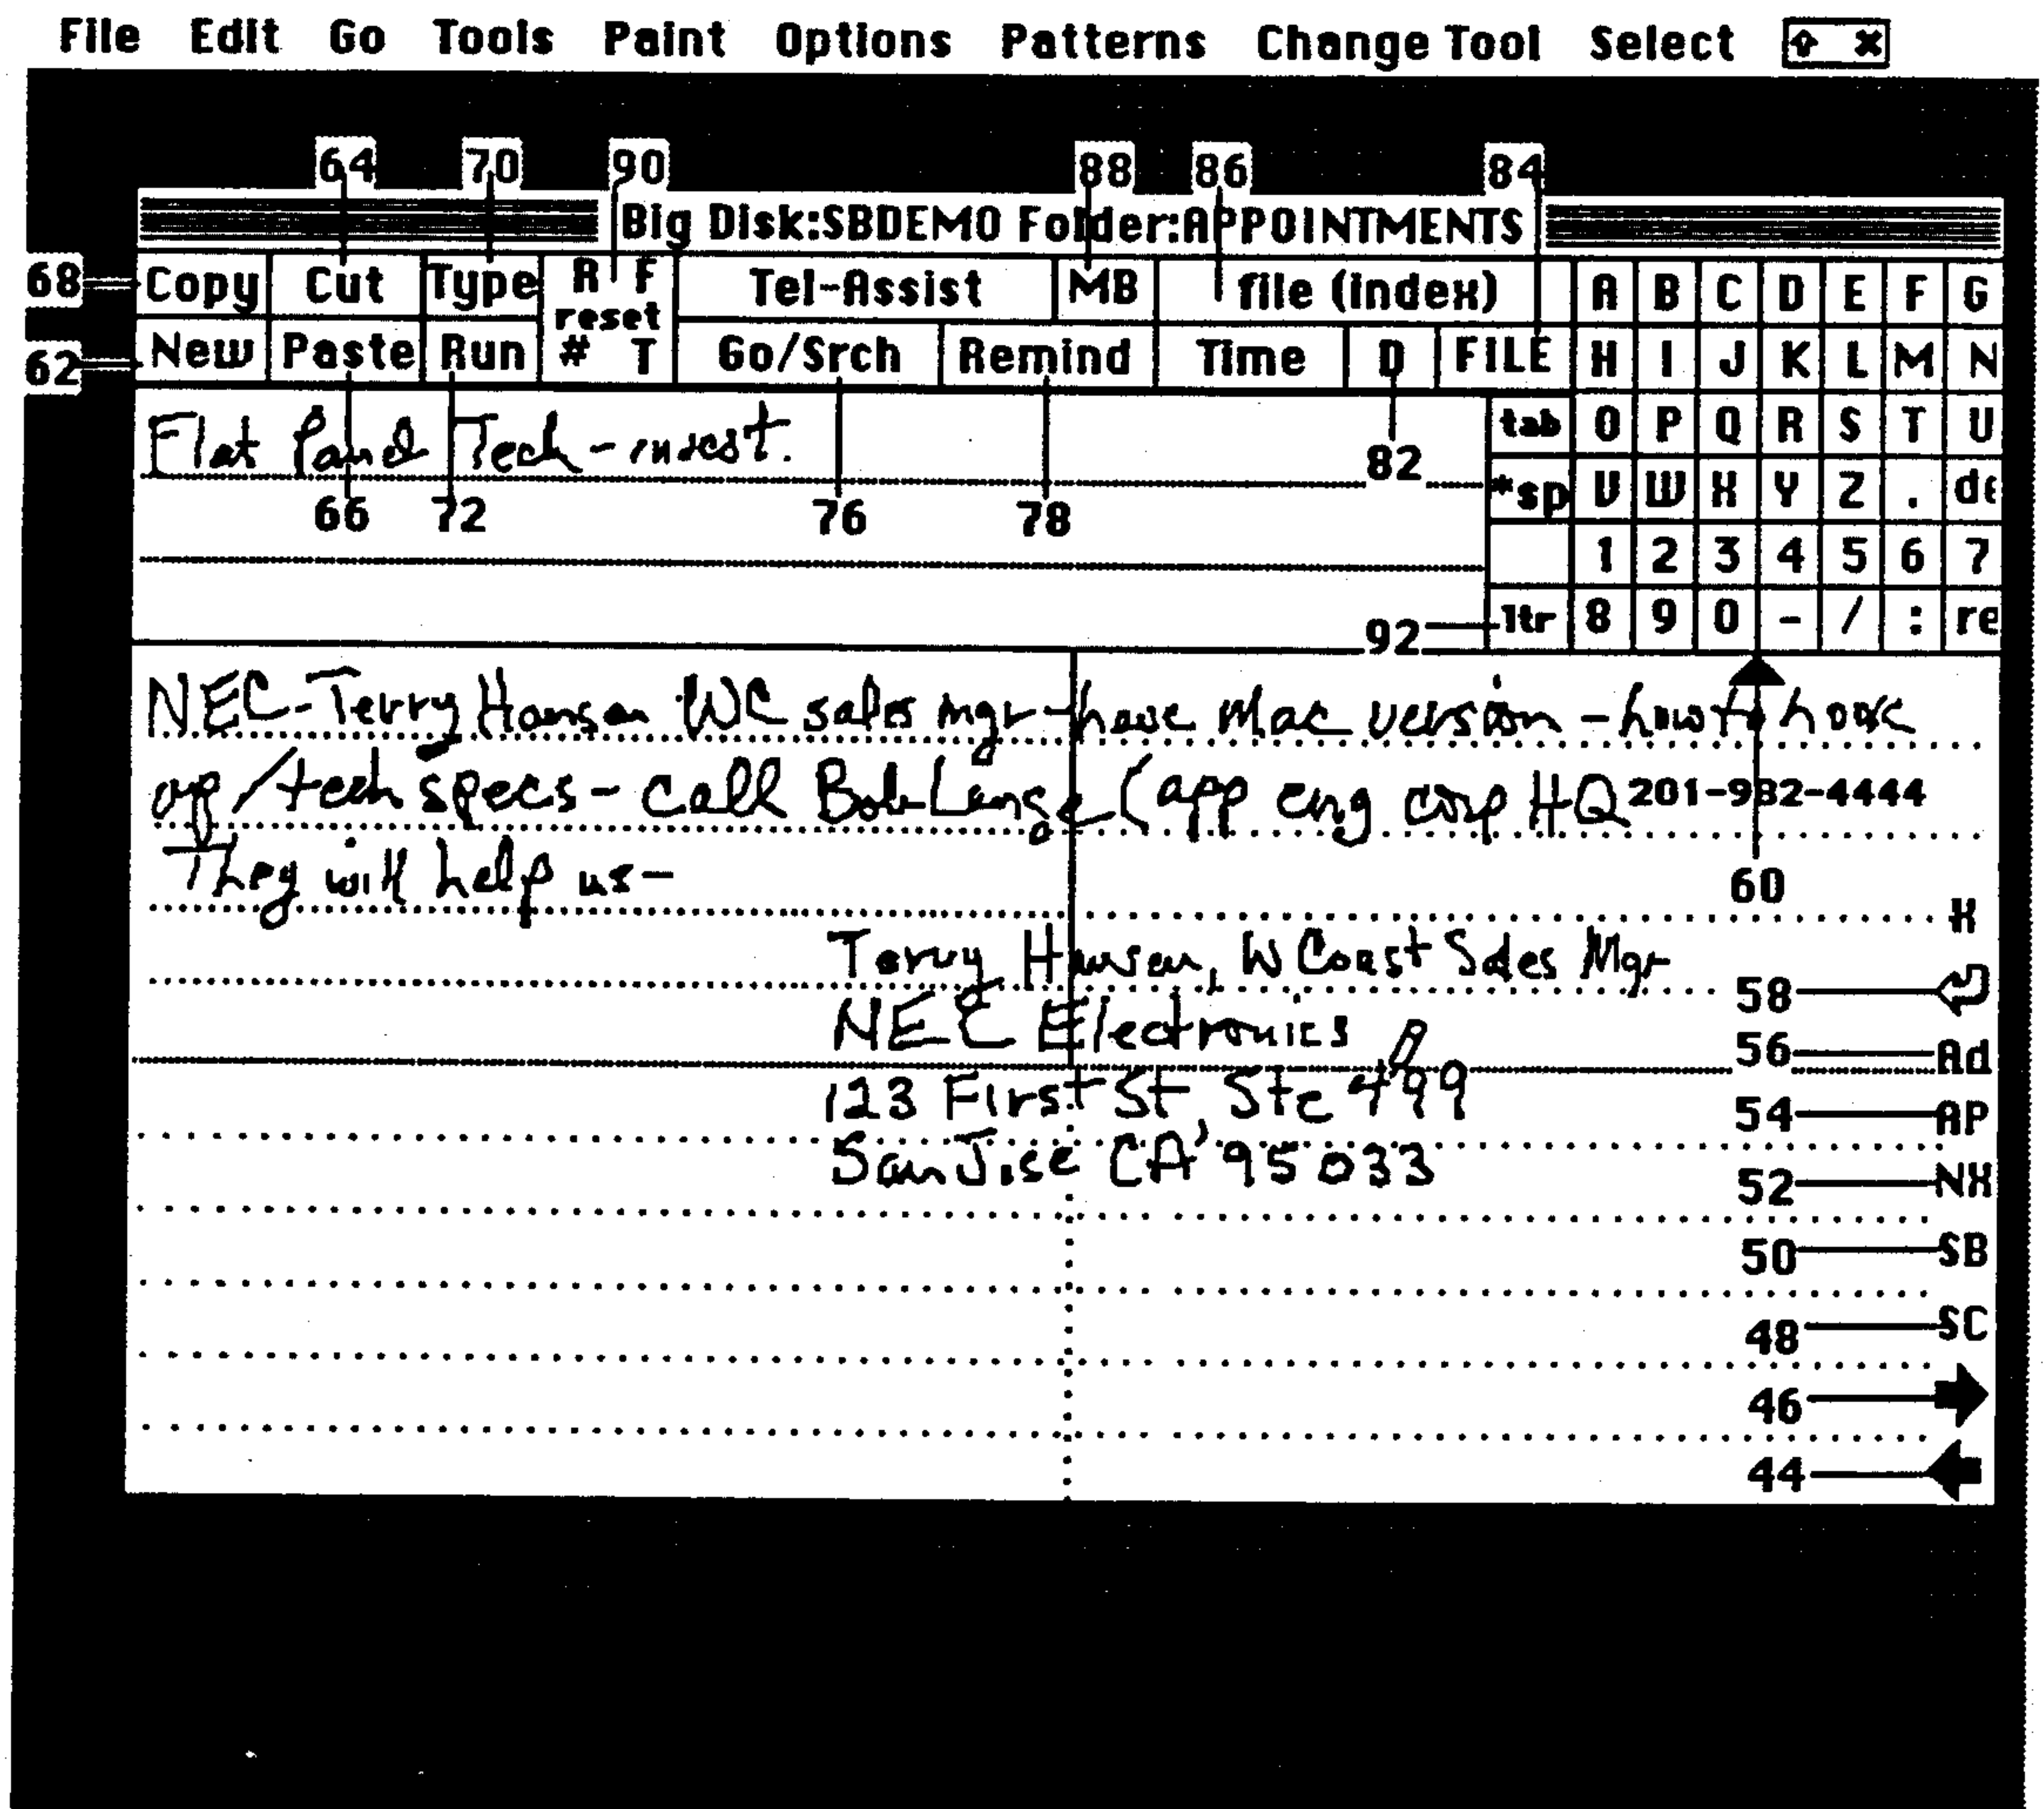 File Edit Go Tools Paint Options Patterns Change Tool Select
64 70 90 88 86 84
Big Disk:SBDEMO Folder:APPOINTMENTS
68 Copy Cut Type R F Tel-Assist MB file (index) A B C D E F G
reset
62 New Paste Run # T Go/Srch Remind Time D FILE H I J K L M N
Flat Panel Tech - invest. tab O P Q R S T U
82
66 72 76 78 *sp V W X Y Z . de
1 2 3 4 5 6 7
92 ltr 8 9 0 - / : re
NEC - Terry Hansen WC sales mgr - have Mac version - how to hook
up / tech specs - call Bob Lange (app eng corp HQ 201-982-4444
They will help us -
60
X
Terry Hansen, W Coast Sales Mgr
58
NEC Electronics
56 Ad
123 First St, Ste 499
54 AP
San Jose CA 95033
52 NX
50 SB
48 SC
46
44